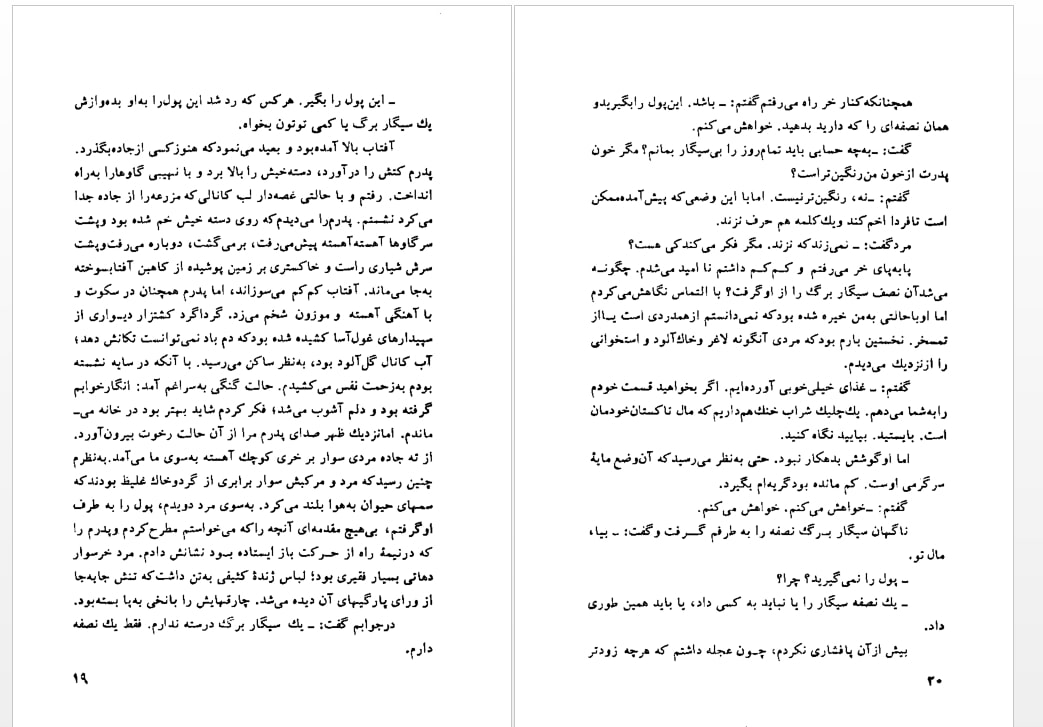 ـ این پول را بگیر. هرکس که رد شد این پول‌را به‌او بده‌وازش
یك سیگار برگ یا کمی توتون بخواه.
آفتاب بالا آمده‌بود و بعید می‌نمودکه هنوزکسی ازجاده‌بگذرد.
پدرم کتش را درآورد، دسته‌خیش را بالا برد و با نهیبی گاوهارا به‌راه
انداخت. رفتم و با حالتی غصه‌دار لب کانالی‌که مزرعه‌را از جاده جدا
می‌کرد نشستم. پدرم‌را می‌دیدم‌که روی دسته خیش خم شده بود وپشت
سرگاوها آهسته‌آهسته پیش‌می‌رفت، برمی‌گشت، دوباره می‌رفت‌وپشت
سرش شیاری راست و خاکستری بر زمین پوشیده از کاهبن آفتابسوخته
به‌جا می‌ماند. آفتاب کم‌کم می‌سوزاند، اما پدرم همچنان در سکوت و
با آهنگی آهسته و موزون شخم می‌زد. گرداگرد کشتزار دیـواری از
سپیدارهای غول‌آسا کشیده شده بودکه دم باد نمی‌توانست تکانش دهد؛
آب کانال گل‌آلود بود، به‌نظر ساکن می‌رسید. با آنکه در سایه نشسته
بودم به‌زحمت نفس می‌کشیدم. حالت گنگی به‌سراغم آمد: انگارخوابم
گرفته بود و دلم آشوب می‌شد؛ فکر کردم شاید بهتر بود در خانه می‌ـ
ماندم. امانزدیك ظهر صدای پدرم مرا از آن حالت رخوت بیرون‌آورد.
از ته جاده مردی سوار بر خری کوچك آهسته به‌سوی ما می‌آمد.به‌نظرم
چنین رسیدکه مرد و مرکبش سوار برابری از گردوخاك غلیظ بودندکه
سمهای حیوان به‌هوا بلند می‌کرد. به‌سوی مرد دویدم، پول را به طرف
اوگرفتم، بی‌هیچ مقدمه‌ای آنچه راکه می‌خواستم مطرح‌کردم وپدرم را
که درنیمهٔ راه از حـرکت باز ایستاده بـود نشانش دادم. مرد خرسوار
دهاتی بسیار فقیری بود؛ لباس ژندهٔ کثیفی به‌تن داشت‌که تنش جابه‌جا
از ورای پارگیهای آن دیده می‌شد. چارقهایش را بانخی به‌پا بسته‌بود.
درجوابم گفت: ـ یك سیگار برگ درسته ندارم. فقط یك نصفه
دارم.
۱۹
همچنانکه‌کنار خر راه می‌رفتم‌گفتم: ـ باشد. این‌پول رابگیریدو
همان نصفه‌ای را که دارید بدهید. خواهش می‌کنم.
گفت: ـ‌به‌چه حسابی باید تمام‌روز را بی‌سیگار بمانم؟ مگر خون
پدرت ازخون من‌رنگین‌تراست؟
گفتم: ـ‌نه، رنگین‌ترنیست. امابا این وضعی‌که پیش‌آمده‌ممکن
است تافردا اخم‌کند ویك‌کلمه هم حرف نزند.
مردگفت: ـ نمی‌زندکه نزند. مگر فکر می‌کندکی هست؟
پابه‌پای خر می‌رفتم و کـم‌کـم داشتم نا امید می‌شدم. چگونـه
می‌شدآن نصف سیگار برگ را از اوگرفت؟ با التماس نگاهش‌می‌کردم
اما اوباحالتی به‌من خیره شده بودکه نمی‌دانستم ازهمدردی است یـااز
تمسخر. نخستین بارم بودکه مردی آنگونه لاغر وخاك‌آلود و استخوانی
را ازنزدیك می‌دیدم.
گفتم: ـ غذای خیلی‌خوبی آورده‌ایم. اگر بخواهید قسمت خودم
رابه‌شما می‌دهم. یك‌چلیك شراب خنك‌هم‌داریم که مال تاکستان‌خودمان
است. بایستید. بیایید نگاه کنید.
اما اوگوشش بدهکار نبود. حتی به‌نظر می‌رسیدکه آن‌وضع مایهٔ
سرگرمی اوست. کم مانده بودگریه‌ام بگیرد.
گفتم: ـ‌خواهش می‌کنم. خواهش می‌کنم.
ناگهان سیگار بـرگ نصفه را به طرفم گـرفت وگفت: ـ بیا،
مال تو.
ـ پول را نمی‌گیرید؟ چرا؟
ـ یك نصفه سیگار را یا نباید به کسی داد، یا باید همین طوری
داد.
بیش ازآن پافشاری نکردم، چـون عجله داشتم که هرچه زودتر
۲۰